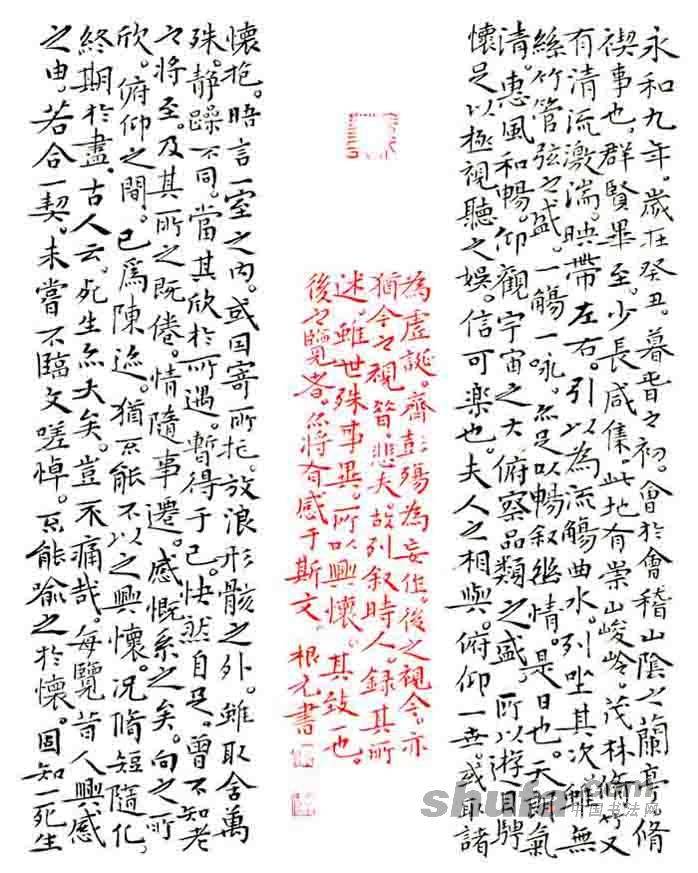 永和九年。歲在癸丑。暮春之初。會於會稽山陰之蘭亭。脩
禊事也。群賢畢至。少長咸集。此地有崇山峻岭。茂林脩竹。又
有清流激湍。映帶左右。引以為流觴曲水。列坐其次。雖無
絲竹管弦之盛。一觴一咏。亦足以暢叙幽情。是日也。天朗氣
清。惠風和暢。仰觀宇宙之大。俯察品類之盛。所以遊目騁
懷。足以極視聽之娛。信可樂也。夫人之相與。俯仰一世。或取諸
懷抱。晤言一室之內。或因寄所托。放浪形骸之外。雖取舍萬
殊。靜躁不同。當其欣於所遇。暫得于己。快然自足。曾不知老
之將至。及其所之既倦。情隨事遷。感慨系之矣。向之所
欣。俯仰之間。已為陳迹。猶不能不以之興懷。況脩短隨化。
終期於盡。古人云。死生亦大矣。豈不痛哉。每覽昔人興感
之由。若合一契。未嘗不臨文嗟悼。不能喻之於懷。固知一死生
為虛誕。齊彭殤為妄作。後之視今。亦
猶今之視昔。悲夫。故列叙時人。錄其所
述。雖世殊事異。所以興懷。其致一也。
後之覽者。亦將有感于斯文。根元書
shufa.com
中国书法网